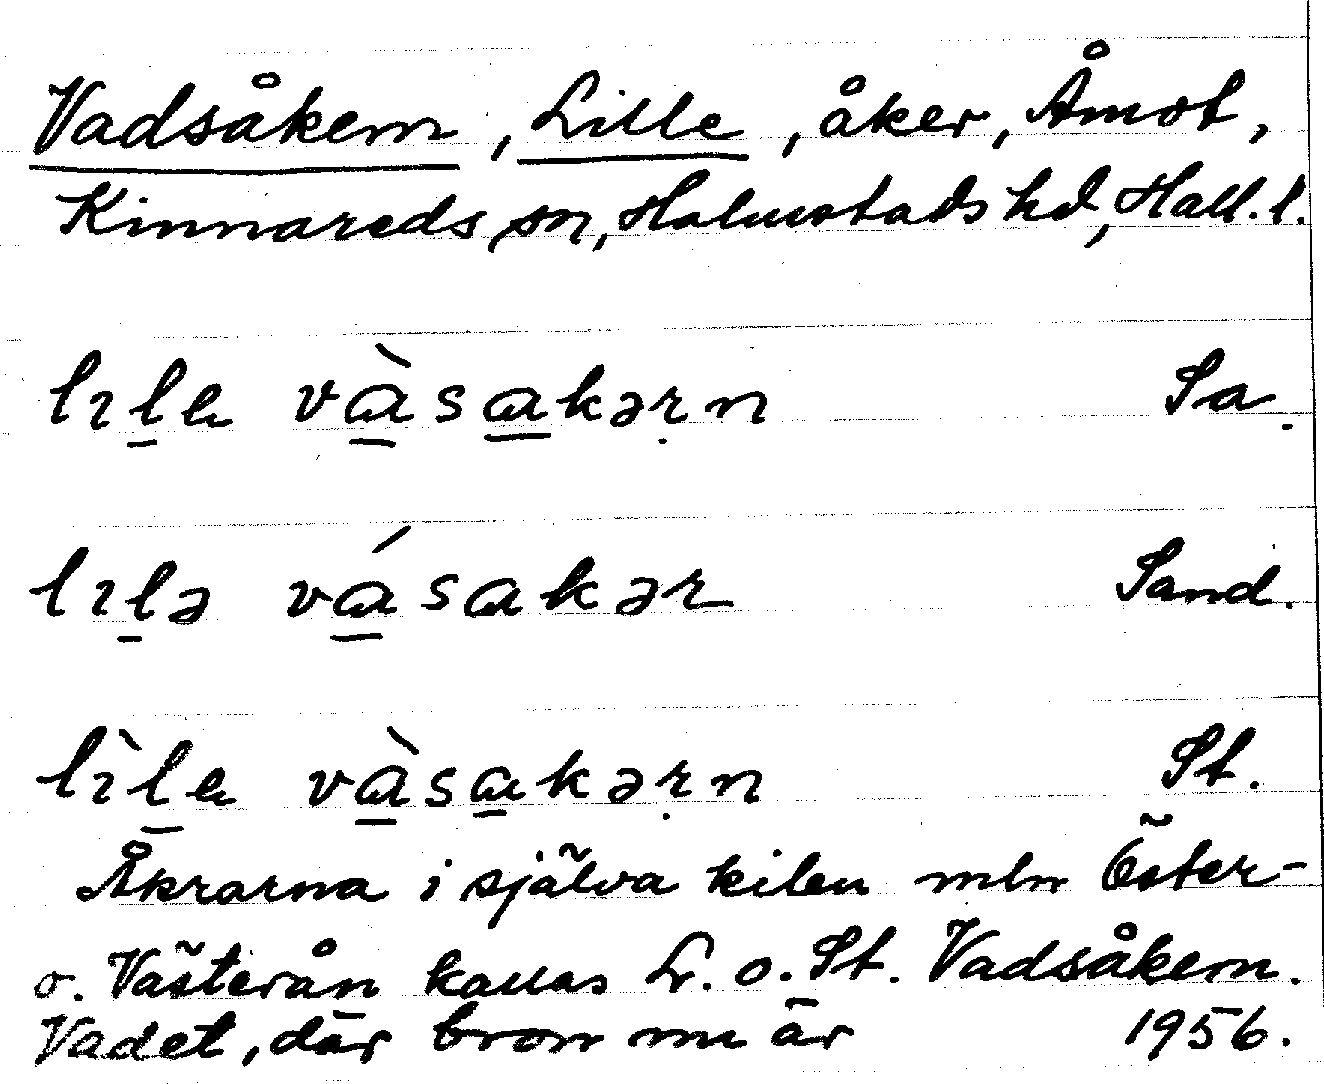 Vadsåkern, Lille, åker, Åmot,
Kinnareds sn, Halmstads hd, Hall. l.
lıl̲e và̲sa̲kəṛn Sa.
lıl̲ə vá̲sakər Sand.
lı̀l̲e và̲sa̲kəṛn St.
Åkrarna i själva kilen mln Öster-
o. Västerån kallas L. o. St. Vadsåkern.
Vadet, där bron nu är 1956.